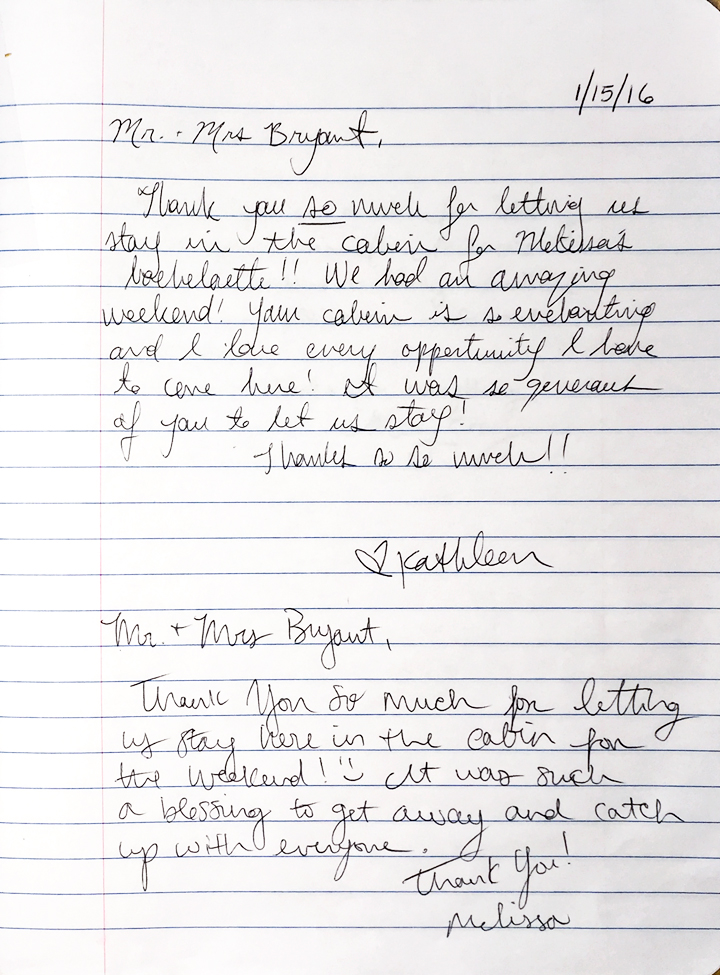 1/15/16
Mr. + Mrs Bryant,
Thank you so much for letting us
stay in the cabin for Melissa's
bachelorette!! We had an amazing
weekend! Your cabin is so enchanting
and I love every opportunity I have
to come here! It was so generous
of you to let us stay!
Thanks so so much!!
♡ Kathleen
Mr. + Mrs Bryant,
Thank You So much for letting
us stay here in the cabin for
the weekend! :) It was such
a blessing to get away and catch
up with everyone.
Thank You!
Melissa